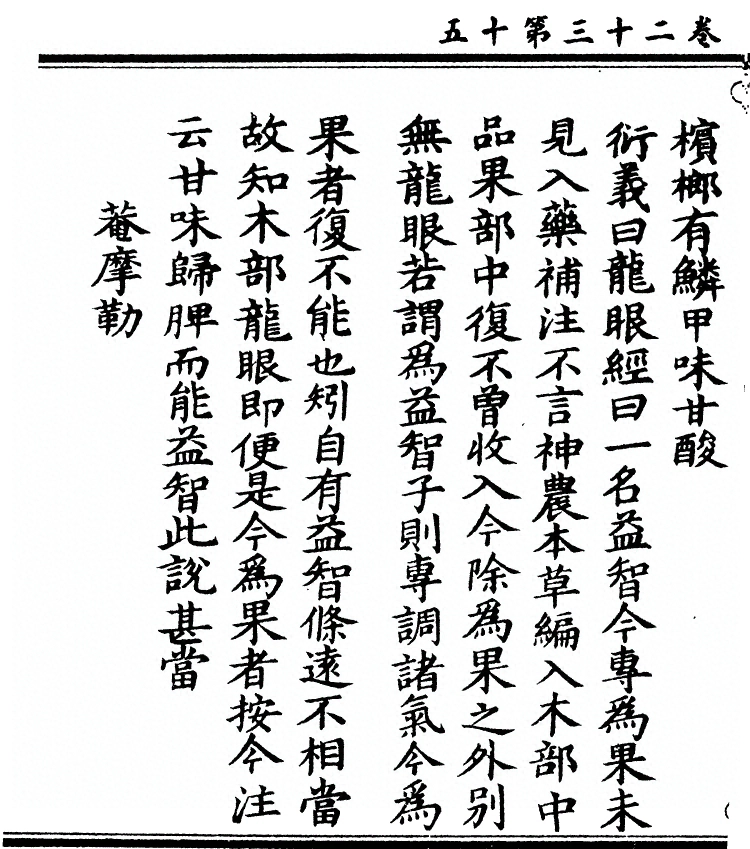 卷二十三第十五
檳榔有鱗甲味甘酸
衍義曰龍眼經曰一名益智今專爲果未
見入藥補注不言神農本草編入木部中
品果部中復不曾收入今除爲果之外別
無龍眼若謂爲益智子則專調諸氣今爲
果者復不能也矧自有益智條遠不相當
故知木部龍眼即便是今爲果者按今注
云甘味歸脾而能益智此說甚當
菴摩勒